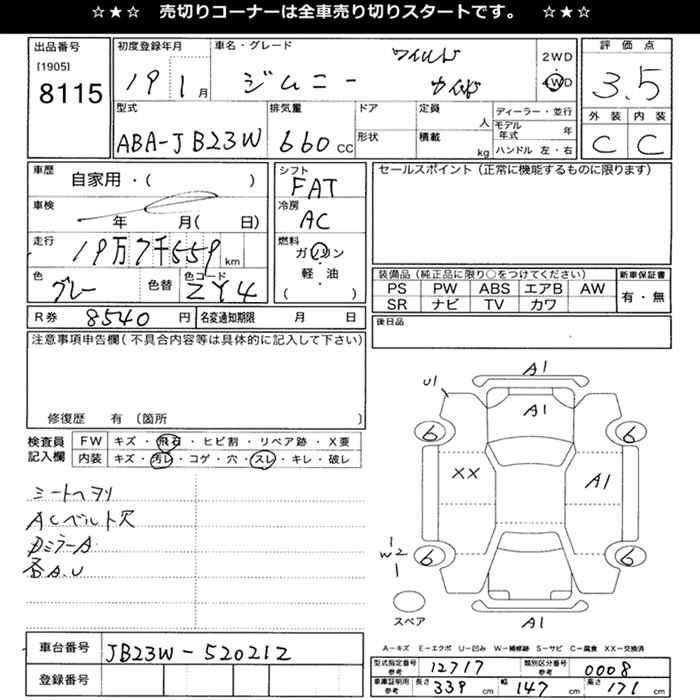 ☆★☆ 売切りコーナーは全車売り切りスタートです。 ☆★☆
出品番号
[1905]
8115
初度登録年月
19 1 月
車名・グレード
ジムニー ワイルド
2WD
4WD
評価点
3.5
外装 内装
C C
型式
ABA-JB23W
排気量
660 CC
ドア
形状
定員 人
積載 kg
ディーラー・並行
モデル年式 年
ハンドル 左・右
車歴
自家用・( )
車検
年 月( 日)
走行
19万7千559 km
色
グレー
色替
色コード
ZY4
シフト
FAT
冷房
AC
燃料
ガソリン
軽・油
( )
セールスポイント(正常に機能するものに限ります)
装備品(純正品に限り○をつけてください)
PS PW ABS エアB AW
SR ナビ TV カワ
新車保証書
有・無
R券 8540 円
名変通知期限 月 日
後日品
注意事項申告欄(不具合内容等は具体的に記入して下さい)
修復歴 有 〔箇所 〕
検査員記入欄
FW キズ・飛石・ヒビ割・リペア跡・X要
内装 キズ・汚レ・コゲ・穴・スレ・キレ・破レ
シートヘタリ
ACベルト欠
DミラーA
各A.U
U1
A1
A1
6 6
XX A1
1
W2
1
6 6
スペア
A1
A−キズ E−エクボ U−凹み W−補修跡 S−サビ C−腐食 XX−交換済
車台番号 JB23W-520212
登録番号
型式指定番号 参考 12717
類別区分番号 参考 0008
車庫証明用 参考 長さ 339 cm 幅 147 cm 高さ 171 cm